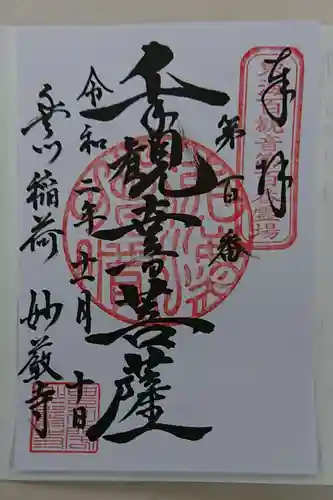 奉拝
第百番
千手観音菩薩
令和二年十一月十日
豊川稲荷 妙厳寺